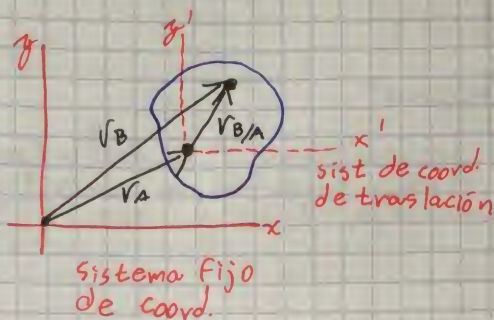 y
y'
rB
rB/A
x'
sist de coord.
de traslación
rA
x
sistema fijo
de coord.